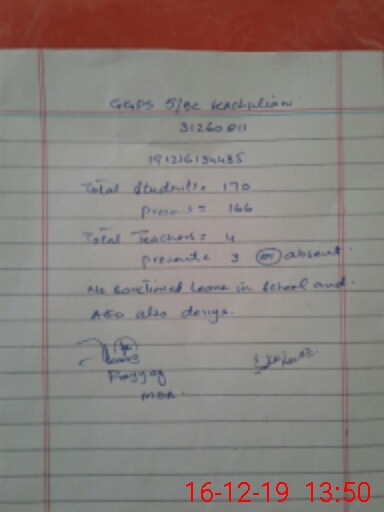 GGPS 5/BC Kachialiani
31260011
191216134485
Total Students = 170
present = 166
Total Teachers = 4
present = 3 01 absent
No Sanctioned Leave in School and
AEO also denys.
Fayyaz
MEA.
16-12-19 13:50